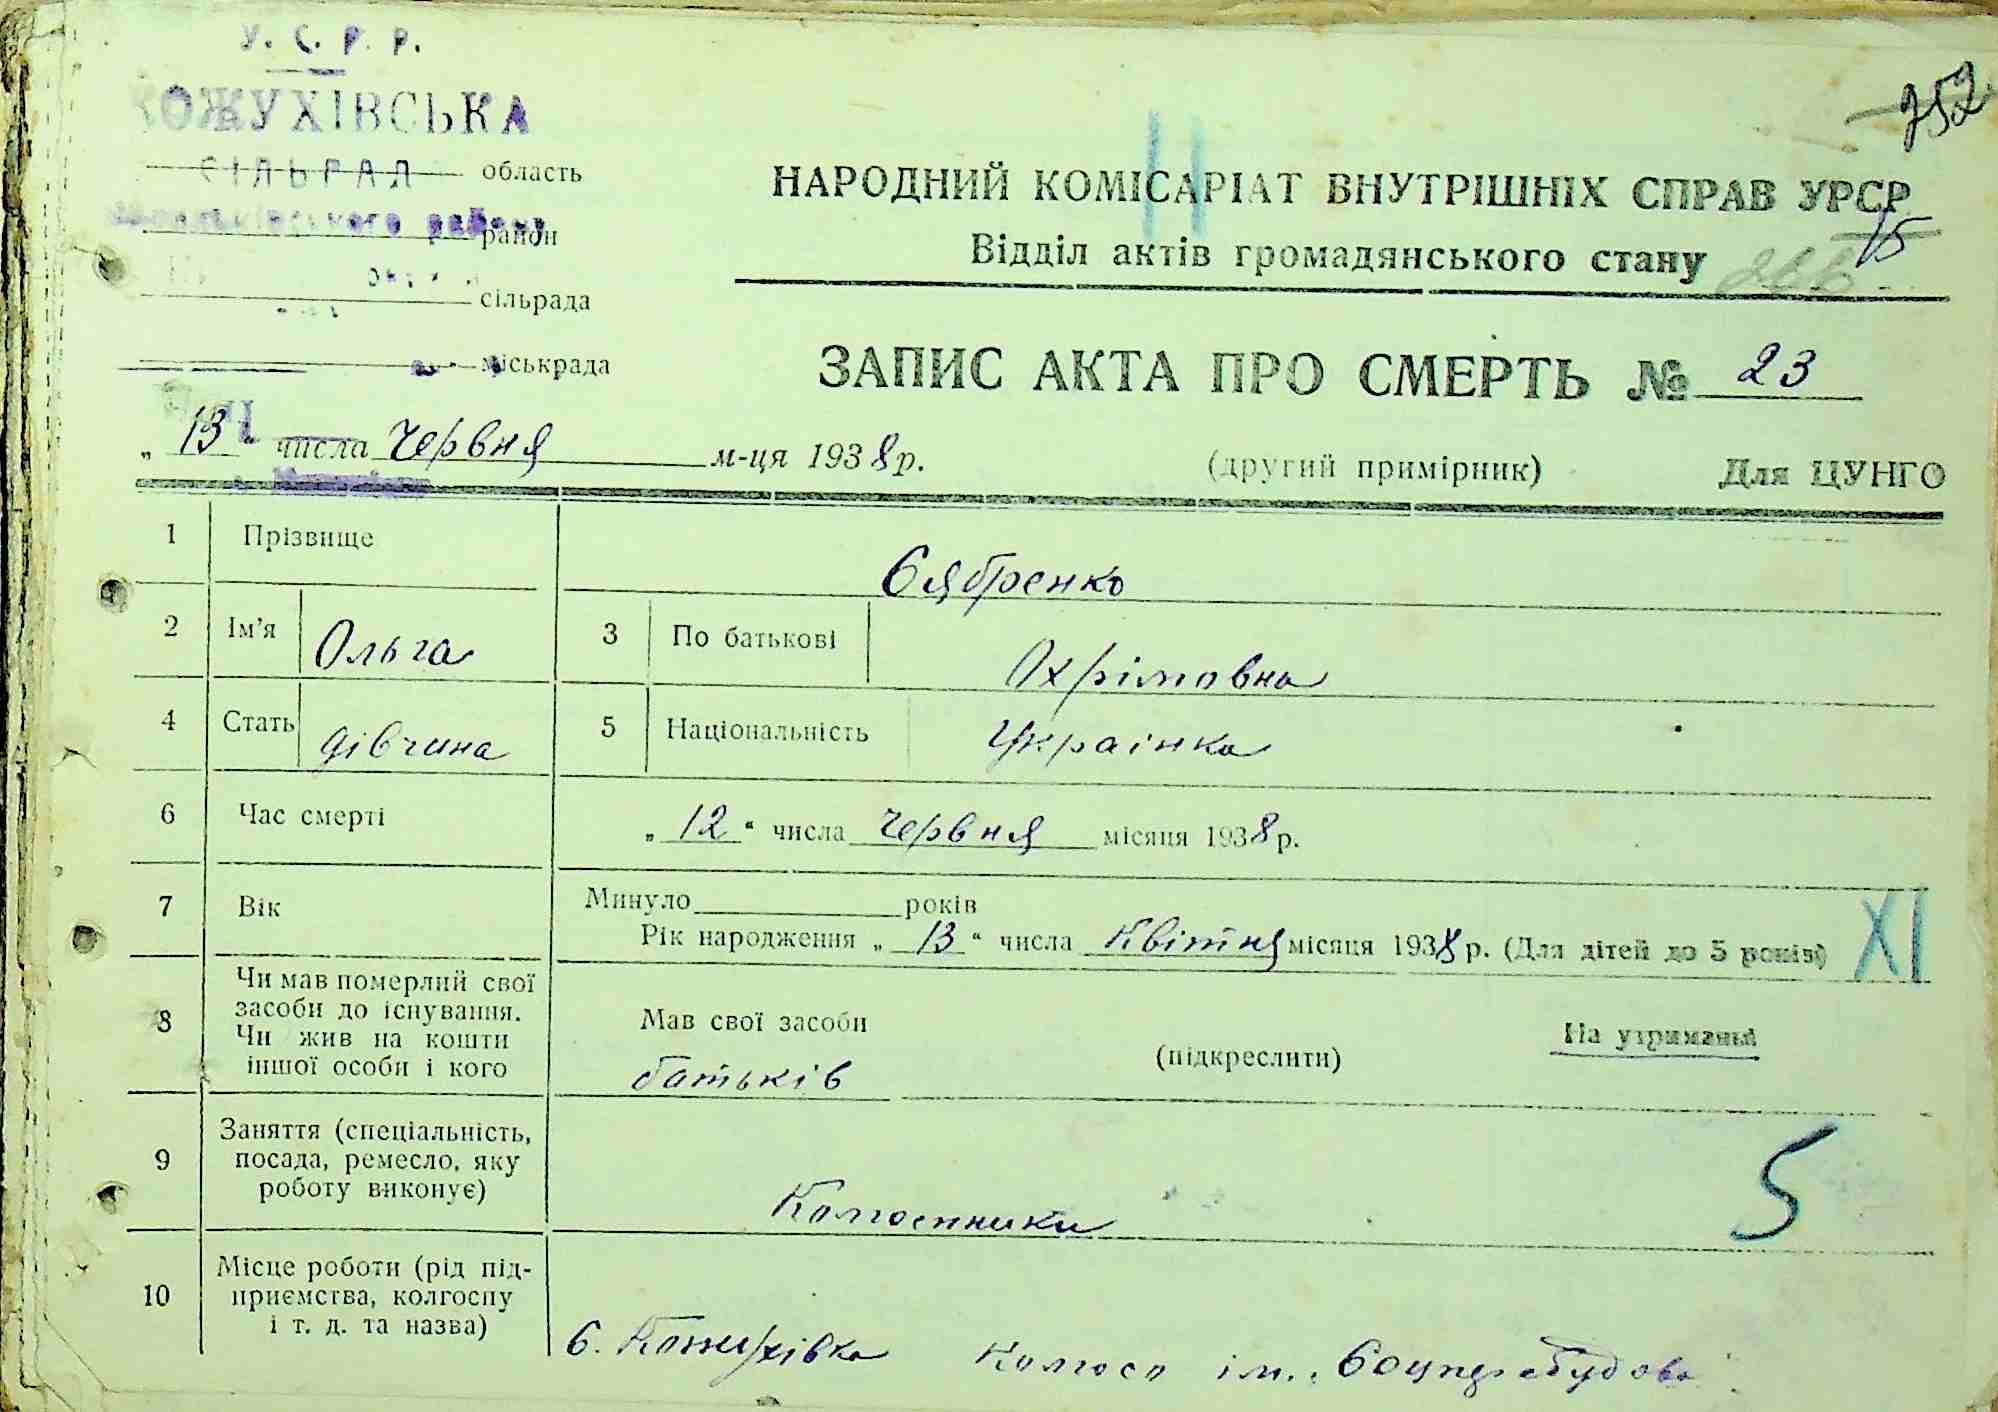 У. С. Р. Р.
КОЖУХІВСЬКА
СІЛЬРАД область
району район
сільрада
міськрада
752
НАРОДНИЙ КОМІСАРІАТ ВНУТРІШНІХ СПРАВ УРСР
15
Відділ актів громадянського стану
ЗАПИС АКТА ПРО СМЕРТЬ № 23
„ 13 “ числа червня м-ця 1938 р.
(другий примірник) Для ЦУНГО
1 Прізвище Сябренко
2 Ім’я Ольга 3 По батькові Охрімовна
4 Стать дівчина 5 Національність Украінка
6 Час смерті „ 12 “ числа червня місяця 1938 р.
7 Вік Минуло років
Рік народження „ 13 “ числа Квітня місяця 1938 р. (Для дітей до 5 років) XI
8 Чи мав померлий свої
засоби до існування.
Чи жив на кошти
іншої особи і кого
Мав свої засоби (підкреслити) На утриманні
батьків
9 Заняття (спеціальність,
посада, ремесло, яку
роботу виконує)
Колгоспники
5
10 Місце роботи (рід під-
приємства, колгоспу
і т. д. та назва)
с. Кожухівка Колгосп ім.